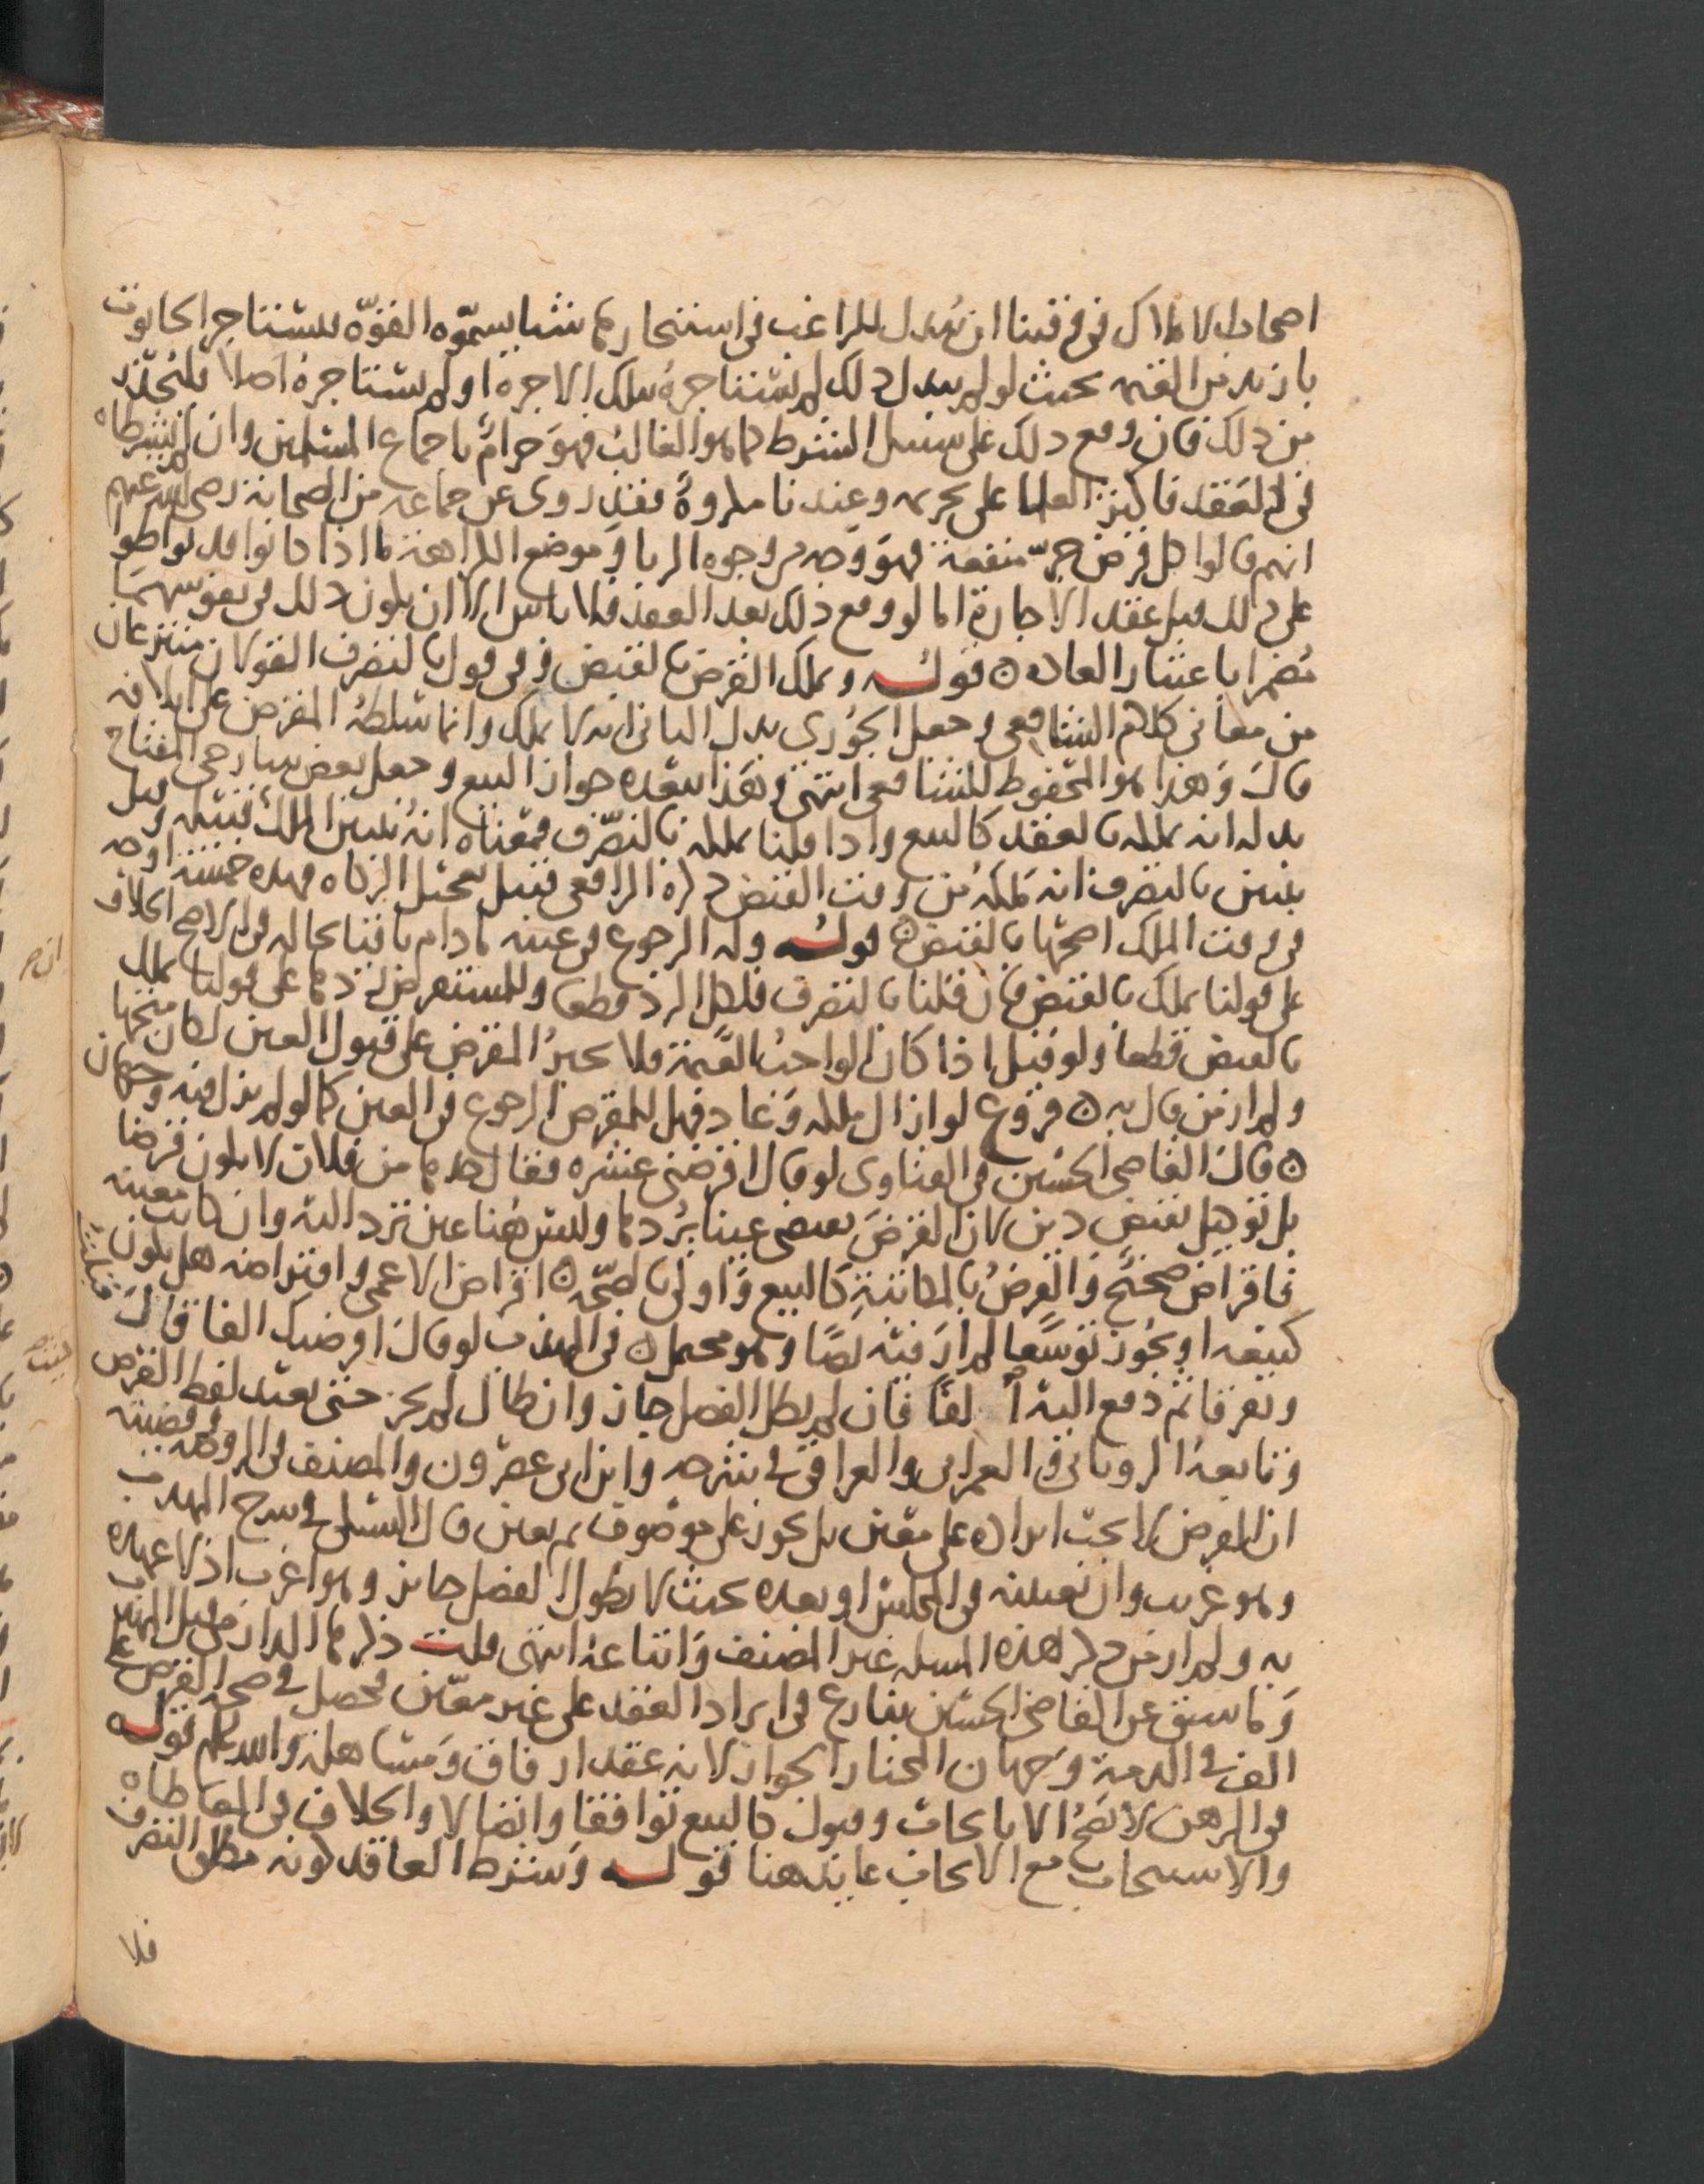 اصحاب الاملاك في وقتنا ان يبدل للراغب في استئجارها شيا يسمّوه القوّه ليستاجر الحانوت
بازيد من القيمه بحيث لو لم يبدل ذلك لم يستاجره بتلك الاجره او لم يستاجره اصلا فليُحذر
من ذلك فان وقع ذلك على سبيل الشرط كما هو الغالب فهو حرامٌ باجماع المسلمين وان لم يشرطاه
في العقد فاكثر العلما على تحريمه وعندنا مكروهٌ فقد روى عن جماعه من الصحابة رضى الله عنهم
انهم قالوا كل قرض جرّ منفعة فهو وجه من وجوه الربا وموضع الكراهة ما اذا كانوا قد تواطوا
على ذلك قبل عقد الاجارة اما لو وقع ذلك بعد العقد فلا باس الا ان يكون ذلك في نفوسهما
مُضمرا باعتبار العاده قوله ويملك القرض بالقبض وفي قول بالتصرف القولان منتزعان
من معاني كلام الشافعي وجعل الجُوري بدل الثاني انه لا يملك وانما سلطهُ المقرض على اتلافه
قال وهذا هو المحفوظ للشافعي انتهى وهذا يبعده جواز البيع وجعل بعض شارحي المفتاح
بدله انه يملكه بالعقد كالبيع واذا قلنا يملكه بالتصرّف فمعناه انه يتبين الملك قبيله وقيل
يتبين بالتصرف انه ملكهُ من وقت القبض ذكره الرافعي قبيل تعجيل الزكاه فهذه خمسة اوجه
في وقت الملك اصحها بالقبض قوله وله الرجوع في عينه مادام باقيا بحاله في الاصح الخلاف
على قولنا يملك بالقبض فان قلنا بالتصرف فلكل الرد قطعا وللمستقرض ردها على قولنا يملك
بالقبض قطعا ولو قيل اذا كان الواجب القيمة فلا يجبرُ المقرض على قبول العين لكان متجها
ولم ار من قال به فروع لو ازال ملكه وعاد فهل للمقرض الرجوع في العين كما لو لم يزل فيه وجهان
قال القاضي الحسين في الفتاوى لو قال اقرضني عشره فقال خدها من فلان لا يكون قرضا
بل توكيل بقبض دين لان القرض يقتضي عينا يردها وليس هُنا عين ترد اليه وان كانت معينه
فاقراض صحيح والقرضُ بالمكاتبة كالبيع واولى بالصحّه اقراض الاعمى واقتراضه هل يكون
كبيعه او يجُوز توسّعا لم ار فيه نصًا وهو محتمل في المهذب لو قال اقرضتك الفا فقال قبلت
وتفرقا ثم دفع اليه الفا فان لم يطل الفصل جاز وان طال لم يجز حتى يعيد لفظ القرض
وتابعه الروياني والعمراني والعراقي في شرحه وابن ابي عصرون والمصنف في الروضه وقضيته
ان القرض لا يجب ايراده على معين بل يجوز على موصوف ثم يعين قال السبكي في شرح المهذب
وهو غريب وان تعيينه في المجلس او بعده بحيث لا يطول الفصل جايز وهو اغرب اذ لا عهده
به ولم ار من ذكر هذه المسله غير المصنف واتباعه انتهى قلت
وما سبق عن القاضي الحسين ينازع في ايراد العقد على غير معين فحصل في صحة القرض على
الف في الدمة وجهان المختار الجواز لانه عقد ارفاق ومساهلة والله اعلم قوله
في الرهن لا يصح الا بايجاب وقبول كالبيع توافقا واتصالا والخلاف في المعاطاه
والاستيجاب مع الايجاب عايد هنا قوله وشرط العاقد كونه مطلق التصرف
فلا